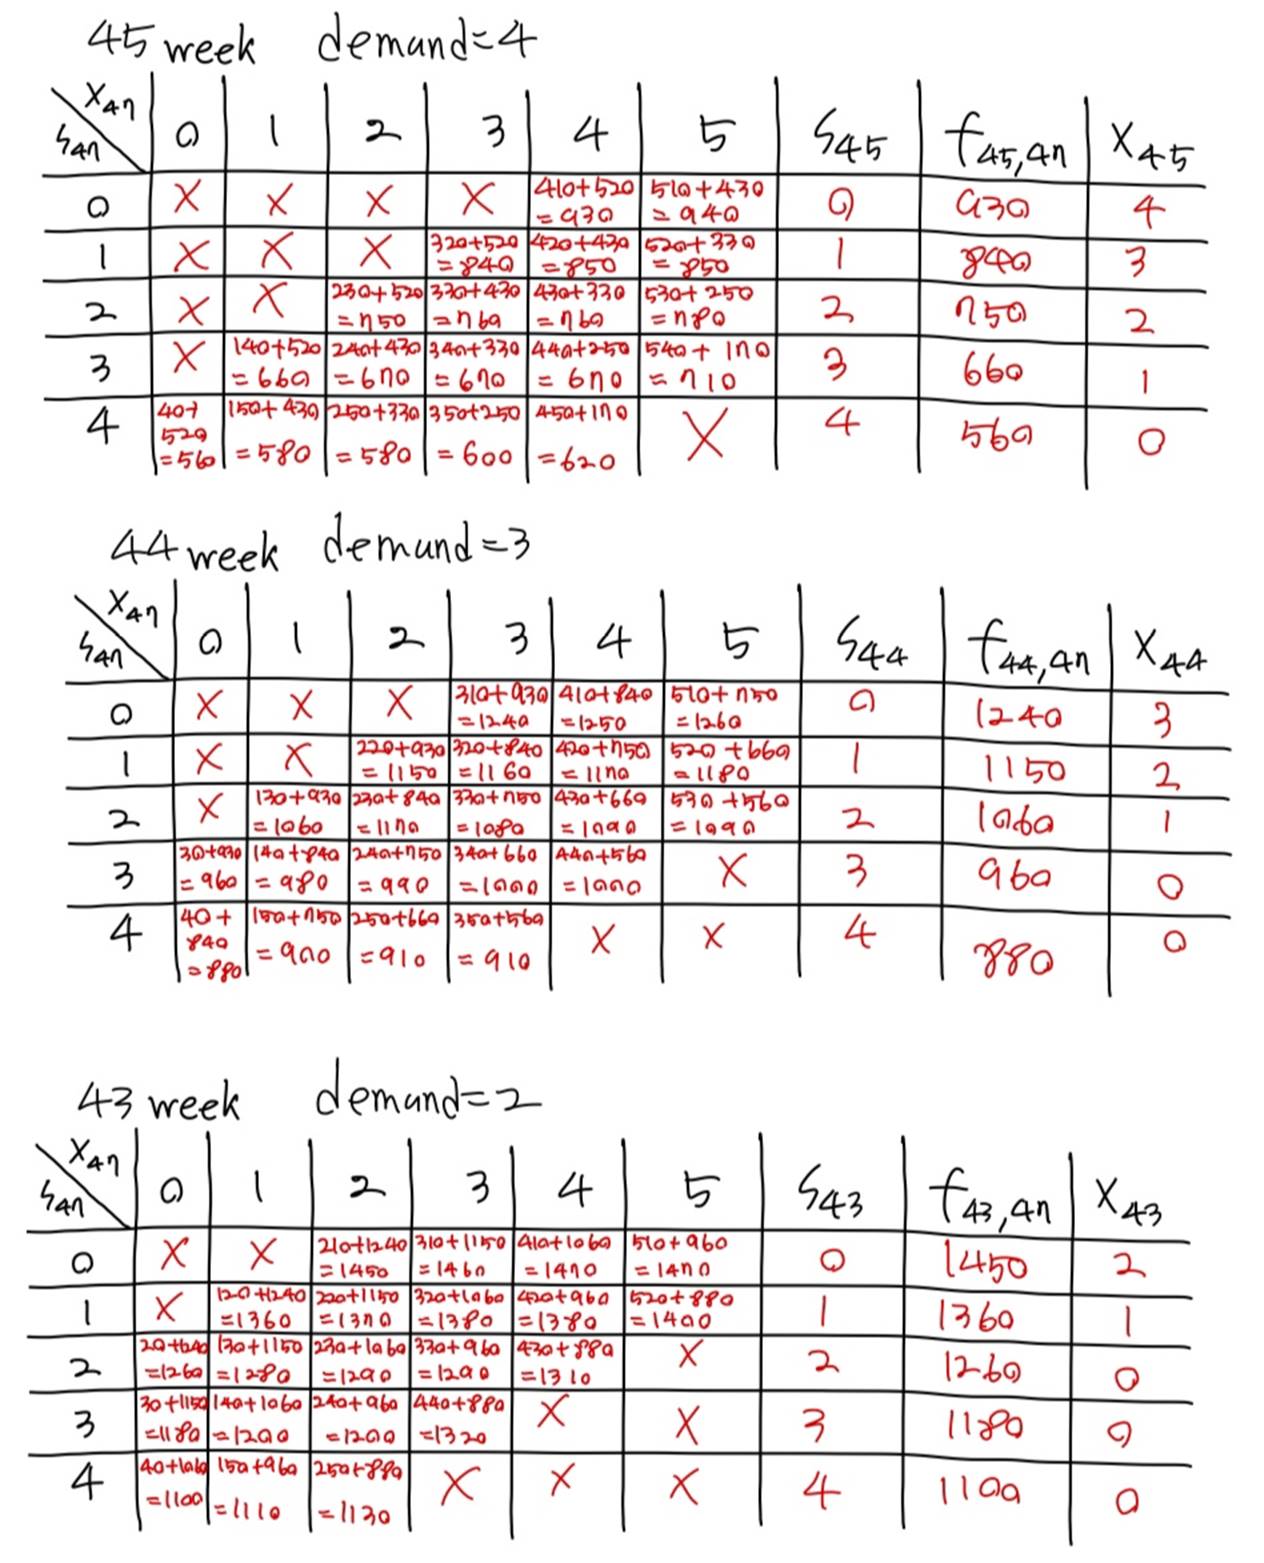 45 week demand=4
X47
S47 0 1 2 3 4 5 S45 f45,47 X45
0 X X X X 410+520 =930 510+430 =940 0 930 4
1 X X X 320+520 =840 420+430 =850 520+330 =850 1 840 3
2 X X 230+520 =750 330+430 =760 430+330 =760 530+250 =780 2 750 2
3 X 140+520 =660 240+430 =670 340+330 =670 440+250 =670 540+170 =710 3 660 1
4 40+520 =560 150+430 =580 250+330 =580 350+250 =600 450+170 =620 X 4 560 0
44 week demand=3
X47
S47 0 1 2 3 4 5 S44 f44,47 X44
0 X X X 310+930 =1240 410+840 =1250 510+750 =1260 0 1240 3
1 X X 220+930 =1150 320+840 =1160 420+750 =1170 520+660 =1180 1 1150 2
2 X 130+930 =1060 230+840 =1170 330+750 =1080 430+660 =1090 530+560 =1090 2 1060 1
3 30+930 =960 140+840 =980 240+750 =990 340+660 =1000 440+560 =1000 X 3 960 0
4 40+840 =880 150+750 =900 250+660 =910 350+560 =910 X X 4 880 0
43 week demand=2
X47
S47 0 1 2 3 4 5 S43 f43,47 X43
0 X X 210+1240 =1450 310+1150 =1460 410+1060 =1470 510+960 =1470 0 1450 2
1 X 120+1240 =1360 220+1150 =1370 320+1060 =1380 420+960 =1380 520+880 =1400 1 1360 1
2 20+1240 =1260 130+1150 =1280 230+1060 =1290 330+960 =1290 430+880 =1310 X 2 1260 0
3 30+1150 =1180 140+1060 =1200 240+960 =1200 440+880 =1320 X X 3 1180 0
4 40+1060 =1100 150+960 =1110 250+880 =1130 X X X 4 1100 0